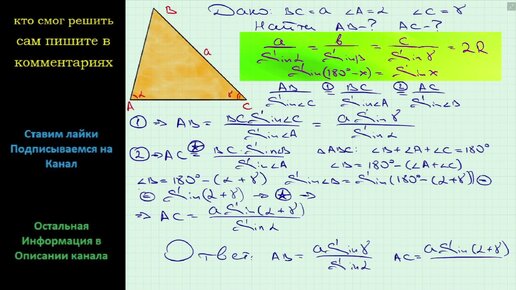 кто смог решить
сам пишите в
комментариях
Ставим лайки
Подписываемся на
Канал
Остальная
Информация в
Описании канала
B
a
A
α
γ
C
Дано: BC=a ∠A=α ∠C=γ
Найти AB-? AC-?
a/Sinα = b/Sinβ = c/Sinγ = 2R
Sin(180°-x) = Sin x
AB/Sin∠C ①= BC/Sin∠A ②= AC/Sin∠B
① ⇒ AB = BC Sin∠C/Sin∠A = a Sinγ/Sinα
② ⇒ AC = BC·Sin∠B/Sin∠A ΔABC: ∠B+∠A+∠C=180°
∠B=180°-(∠A+∠C)
∠B=180°-(α+γ) Sin∠B=Sin(180°-(α+γ)) =
= Sin(α+γ) → ⊛ ⇒
⇒ AC = a Sin(α+γ)/Sinα
Ответ: AB = a Sinγ/Sinα AC = a Sin(α+γ)